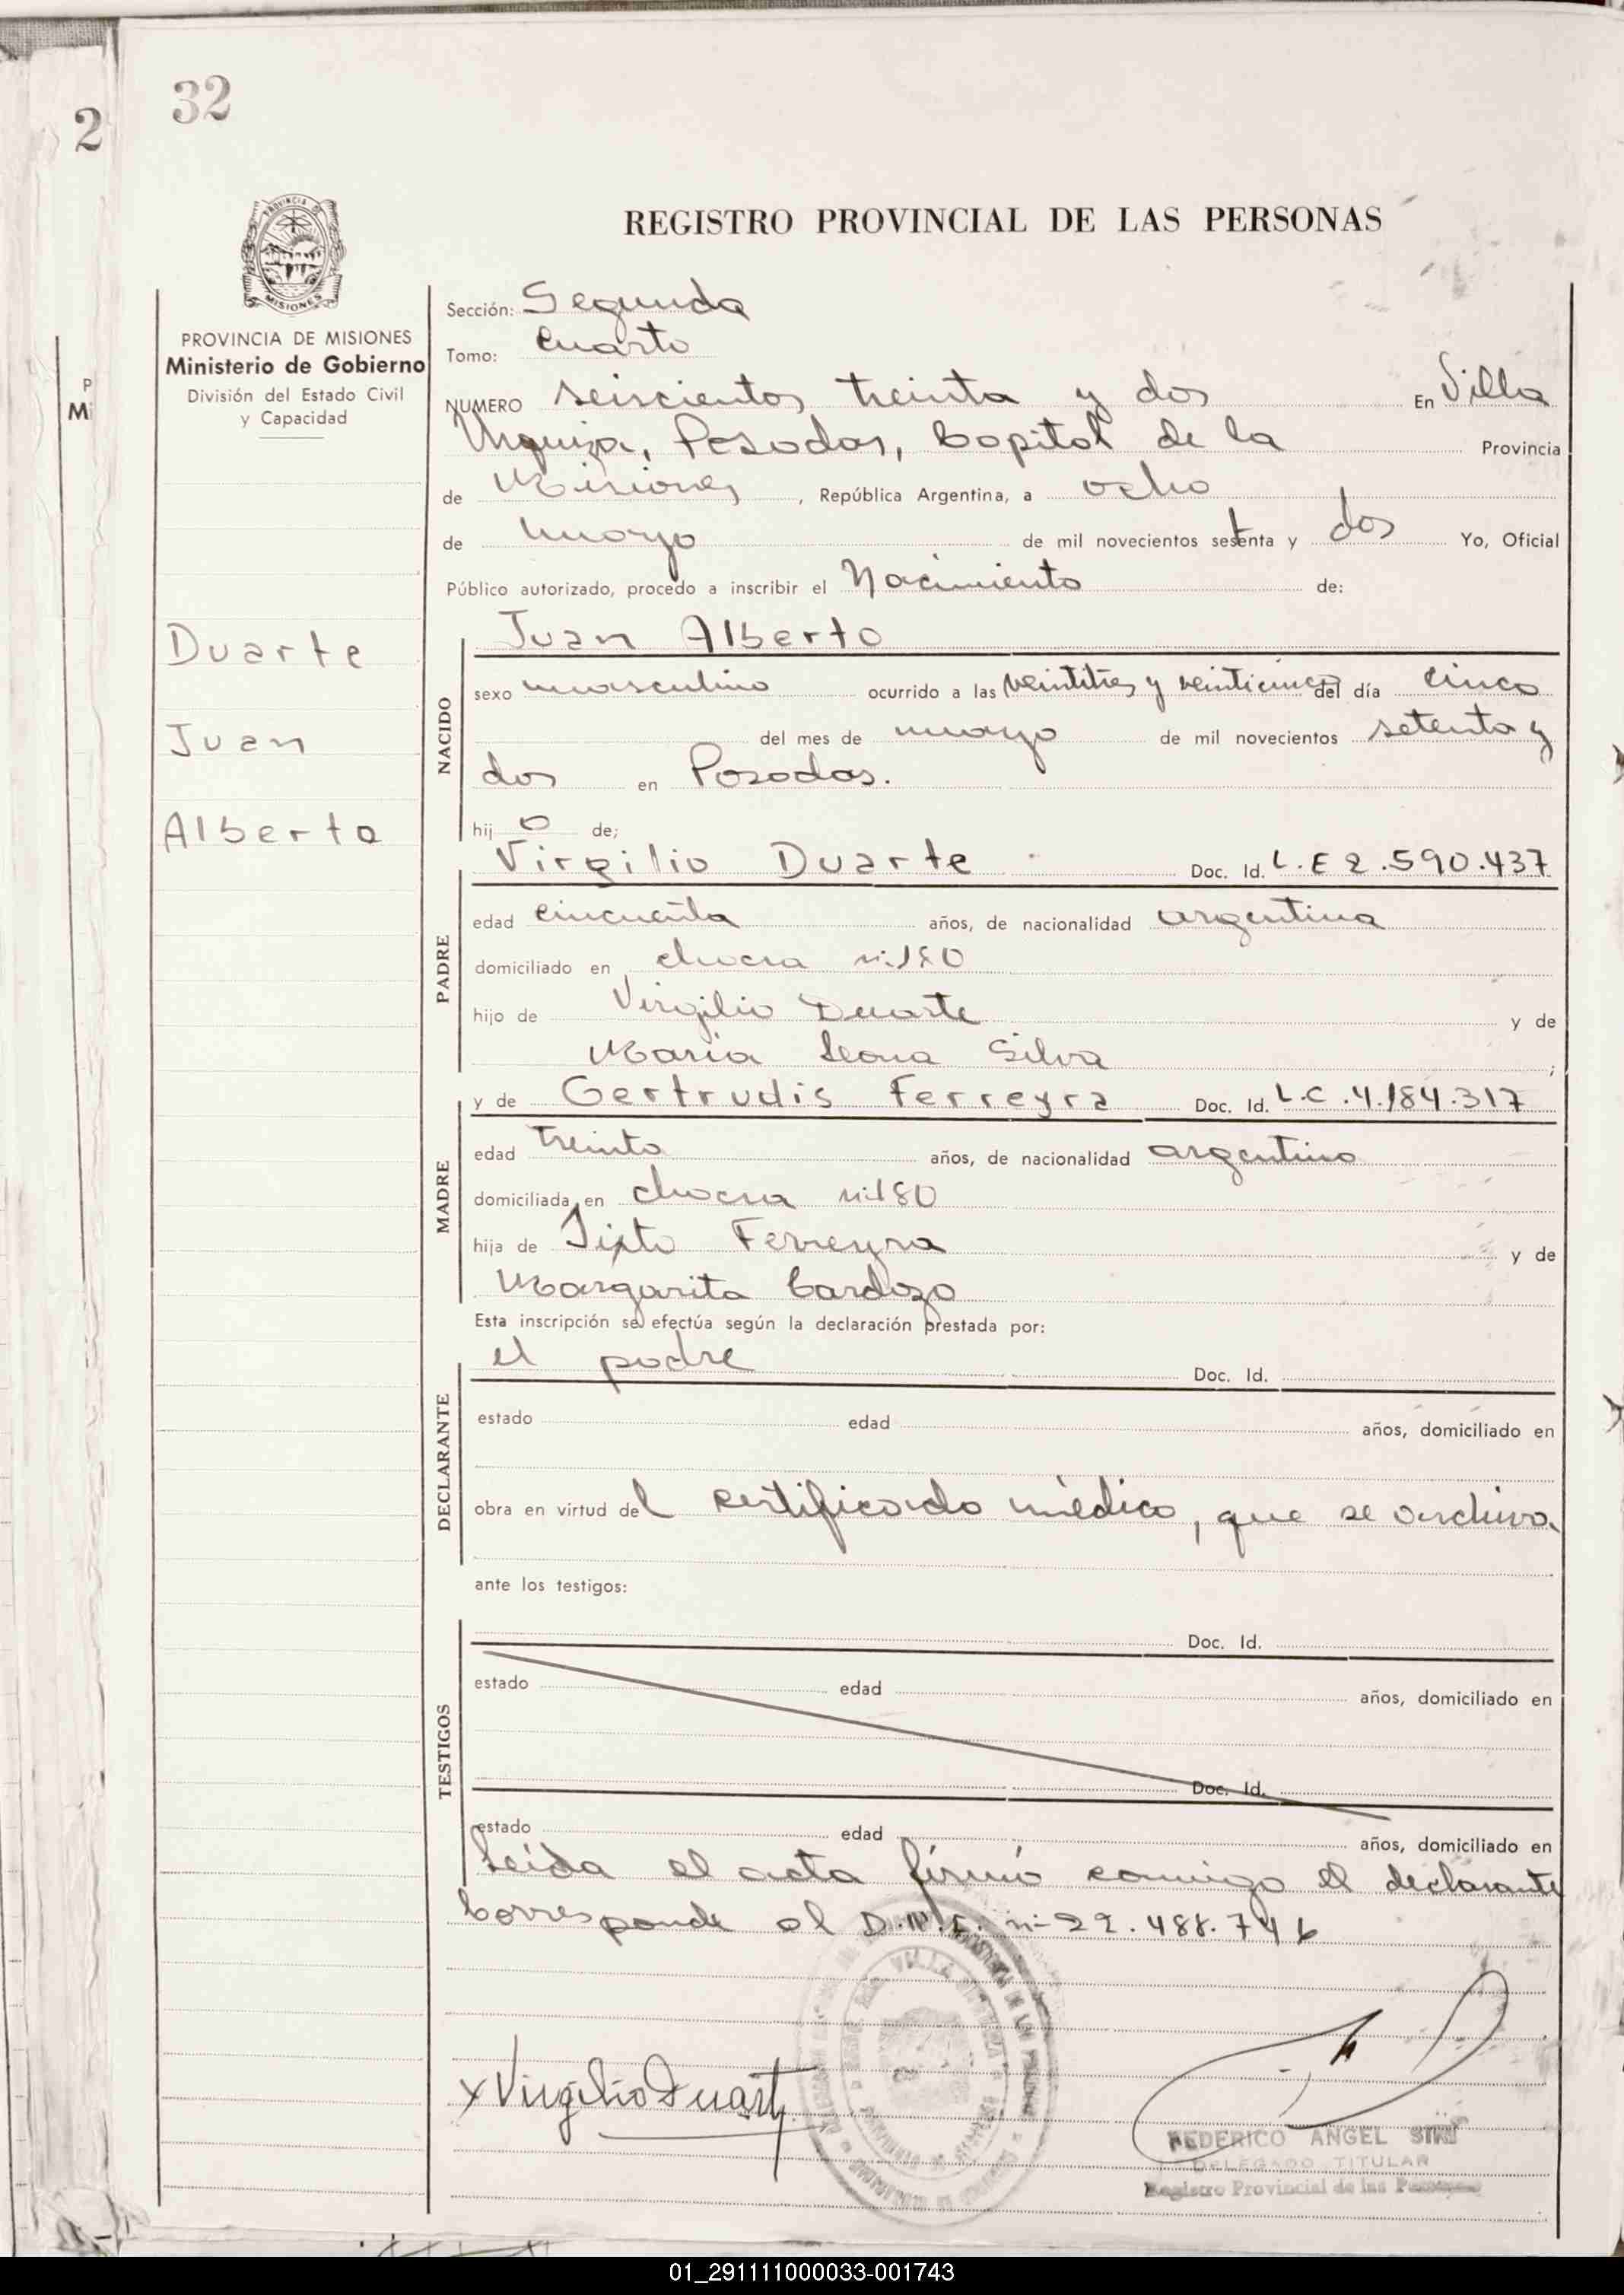 32
2
REGISTRO PROVINCIAL DE LAS PERSONAS
PROVINCIA DE MISIONES
Ministerio de Gobierno
División del Estado Civil
y Capacidad
P
Mi
Sección: Segunda
Tomo: Cuarto
NUMERO seiscientos treinta y dos En Villa
Urquiza, Posadas, Capital de la Provincia
de Misiones, República Argentina, a ocho
de mayo de mil novecientos setenta y dos Yo, Oficial
Público autorizado, procedo a inscribir el Nacimiento de:
Duarte
Juan
Alberto
NACIDO
Juan Alberto
sexo masculino ocurrido a las veintitres y veinticinco del día cinco
del mes de mayo de mil novecientos setenta y
dos en Posadas.
hij o de;
PADRE
Virgilio Duarte Doc. Id. L.E 2.590.437
edad cincuenta años, de nacionalidad argentina
domiciliado en chacra n: 180
hijo de Virgilio Duarte y de
Maria Leona Silva ;
MADRE
y de Gertrudis Ferreyra Doc. Id. L.C.4.184.317
edad treinta años, de nacionalidad argentina
domiciliada en chacra n:180
hija de Sixto Ferreyra y de
Margarita Cardozo
Esta inscripción se efectúa según la declaración prestada por:
DECLARANTE
el padre Doc. Id.
estado edad años, domiciliado en
obra en virtud del certificado médico, que se archiva.
ante los testigos:
TESTIGOS
Doc. Id.
estado edad años, domiciliado en
Doc. Id.
estado edad años, domiciliado en
Leída el acta firmó conmigo el declarante
Corresponde al D.N.I. n- 22.488.746
x Virgilio Duarte
FEDERICO ANGEL
DELEGADO TITULAR
Registro Provincial de las Personas
01_291111000033-001743